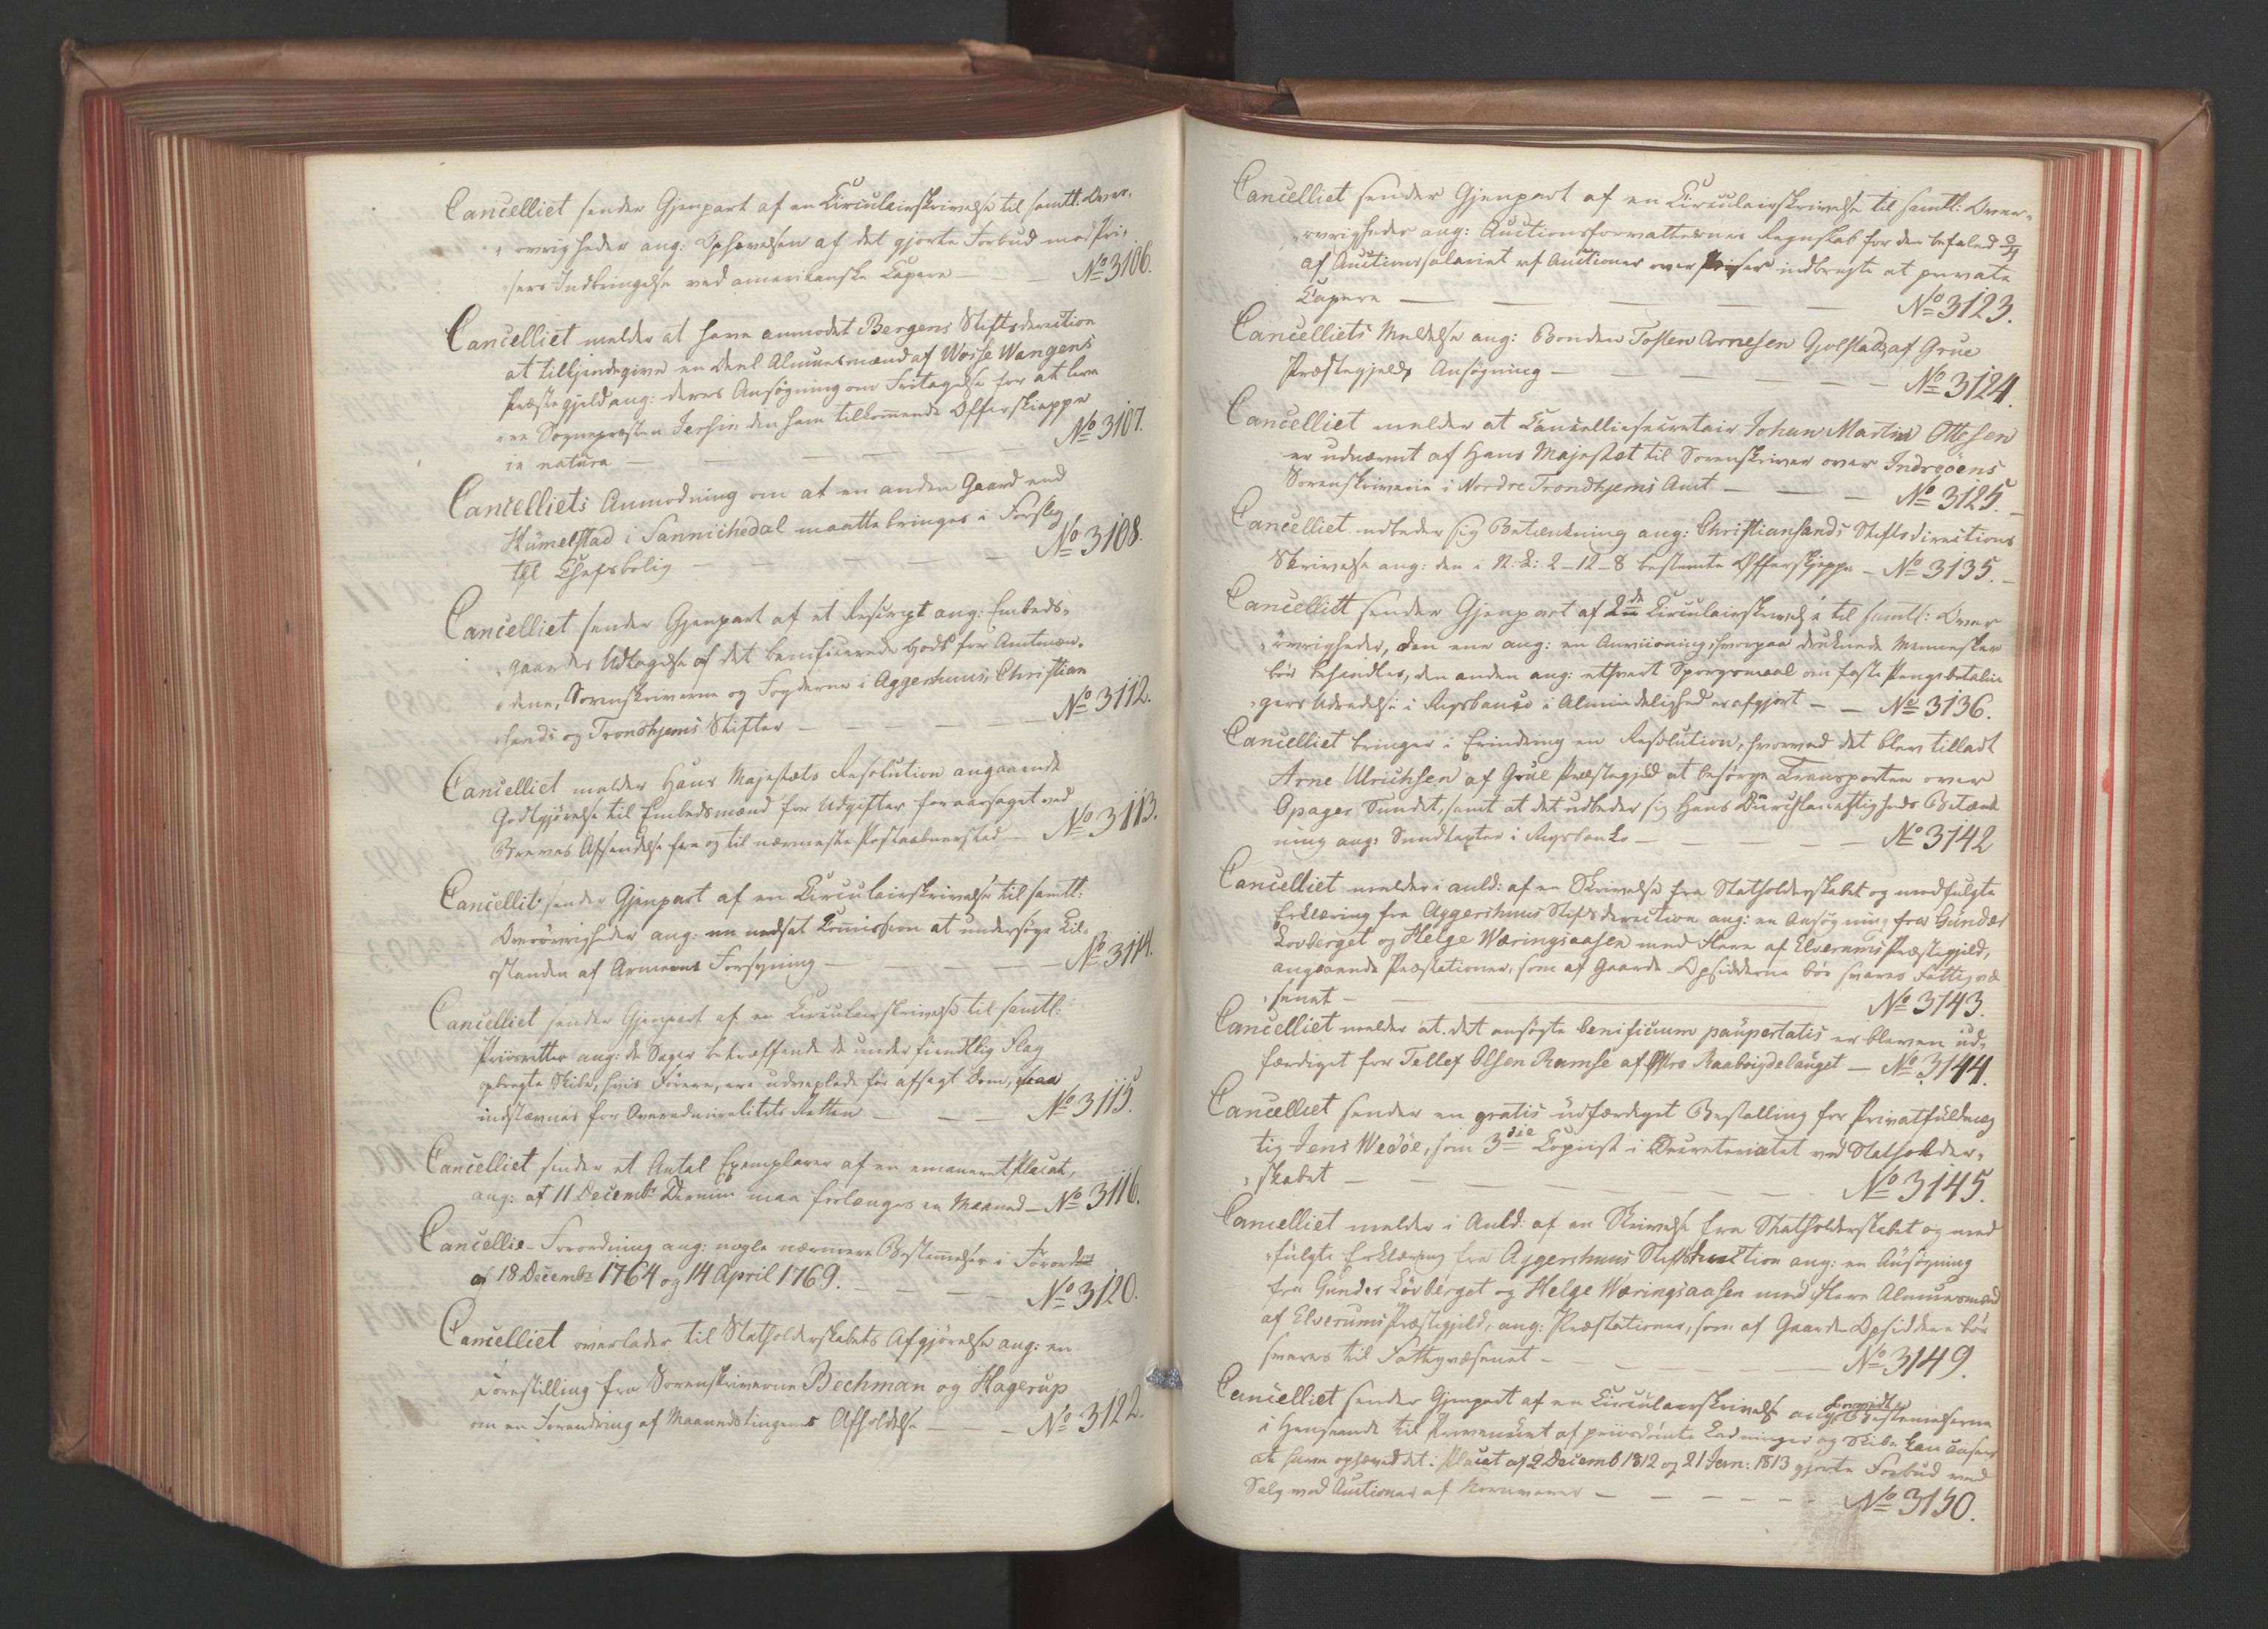 Cancelliet sender Gjenpart af en Circulairskrivelse til samtl. Over-
øvrigheder ang: Ophævelsen af det gjorte Forbud mod Pri-
sers Indbringelse ved amerikanske Capere — No 3106.
Cancelliet melder at have anmodet Bergens Stiftsdirection
at tilkjendegive en Deel Almuesmænd af Wosse Wangens
Præstegjeld ang: deres Ansøgning om Fritagelse for at leve-
re Sognepræsten Jersin den ham tilkommende Offerskieppe
in natura — No 3107.
Cancelliets Anmodning om at en anden Gaard end
Humelstad i Sannichedal maatte bringes i Forslag
til Chefsbolig — No 3108.
Cancelliet sender Gjenpart af et Rescript ang: Embeds-
gaardes Udlægelse af det beneficerede Gods for Amtmæn-
dene, Sorenskriverne og Fogderne i Aggershuus, Christian
sands og Trondhjems Stifter — No 3112.
Cancelliet melder Hans Majestæts Resolution angaaende
Godtgjørelse til Embedsmænd for Udgifter foraarsaget ved
Breves Afsendelse fra og til nærmeste Postaabnersted — No 3113.
Cancelliet sender Gjenpart af en Circulairskrivelse til samtl:
Overøvrigheder ang: en nedsat Commission at undersøge Til-
standen af Armeens Forsyning — No 3114.
Cancelliet sender Gjenpart af en Circulairskrivelse til samtl:
Priisretter ang: de Sager betræffende de under fiendtlig Flag
opbragte Skibe, hvis Førere, ere udvexlede før afsagt Dom, maa
indstævnes for Overadmiralitets Retten — No 3115.
Cancelliet sender et Antal Exemplarer af en emaneret Placat,
ang: at 11 Decembr Termin maa forlænges en Maaned — No 3116.
Cancellie-Forordning ang: nogle nærmere Bestemmelser i Forordn
af 18 Decembr 1764 og 14 April 1769. — No 3120.
Cancelliet overlader til Statholderskabets Afgjørelse ang: en
Forestilling fra Sorenskriverne Bechman og Hagerup
om en Forandring af Maanedstingenes Afholdelse — No 3122.
Cancelliet sender Gjenpart af en Circulairskrivelse til samtl: Over-
øvrigheder ang: Auctionsforvalternes Regnskab for den befalede 3/4
af Auctionssalariet af Auctioner over Priser indbragte at private
Capere — No 3123.
Cancelliets Meldelse ang: Bonden Tosten Arnesen Golstad, af Grue
Præstegjelds Ansøgning — No 3124.
Cancelliet melder at Cancelliesecretair Johan Martin Ottesen
er udnævnt af Hans Majestæt til Sorenskriver over Inderøens
Sorenskriverie i Nordre Trondhjems Amt — No 3125.
Cancelliet udbeder sig Betænkning ang: Christiansands Stiftsdirections
Skrivelse ang: den i N: L: 2-12-8 bestemte Offerskjeppe — No 3135.
Cancelliet sender Gjenpart af 2de Circulairskrivelse til samtl: Over
øvrigheder, den ene ang: en Anviisning, hvorpaa druknede Mennesker
bør behandles, den anden ang: ethvert Spørgsmaal om faste Pengebetalin
gers Udredelse i Rigsbanco i Almindelighed er afgjort — No 3136.
Cancelliet bringer i Erindring en Resolution, hvorved det blev tilladt
Arne Ulrichsen af Grue Præstegjeld at besørge Transporten over
Opager Sundet, samt at det udbeder sig Hans Durchlauchtigheds Betænk
ning ang: Sundtaxter i Rigsbanko — No 3142
Cancelliet melder i anld: af en Skrivelse fra Statholderskabet og medfulgte
Erklæring fra Aggershuus Stiftsdirection ang: en Ansøgning fra Gunder
Lovberget og Helge Wæringsaasen med flere af Elverums Præstegjeld,
angaaende Præstationer, som af Gaarde Opsidderne bør svares Fattigvæ
senet — No 3143.
Cancelliet melder at det ansøgte beneficium paupertatis er bleven ud-
færdiget for Tellef Olsen Ramse af Øvre Raabøigdelauget — No 3144.
Cancelliet sender en gratis udfærdiget Bestalling for Privatfuldmæg
tig Jens Wedøe, som 3die Copiist i Secreteriatet ved Statholder-
skabet — No 3145.
Cancelliet melder i Anld: af en Skrivelse fra Statholderskabet og med
fulgte Erklæring fra Aggershuus Stiftsdirection ang: en Ansøgning
fra Gunder Løvberget og Helge Wæringsaasen med flere Almuesmænd
af Elverums Præstegjeld, ang: Præstationer, som af Gaarde Opsiddere bør
svares til Fattigvæsenet — No 3149.
Cancelliet sender Gjenpart af en Circulairskrivelse ang: Bestemmelserne
i Henseende til Provenuet af priisdømte Ladninger og Skibe kan ansees
at have ophævet det i Placat af 2 Decemb 1812 og 21 Jan: 1813 gjorte Forbud mod
Salg ved Auctioner af Kornvarer — No 3150.